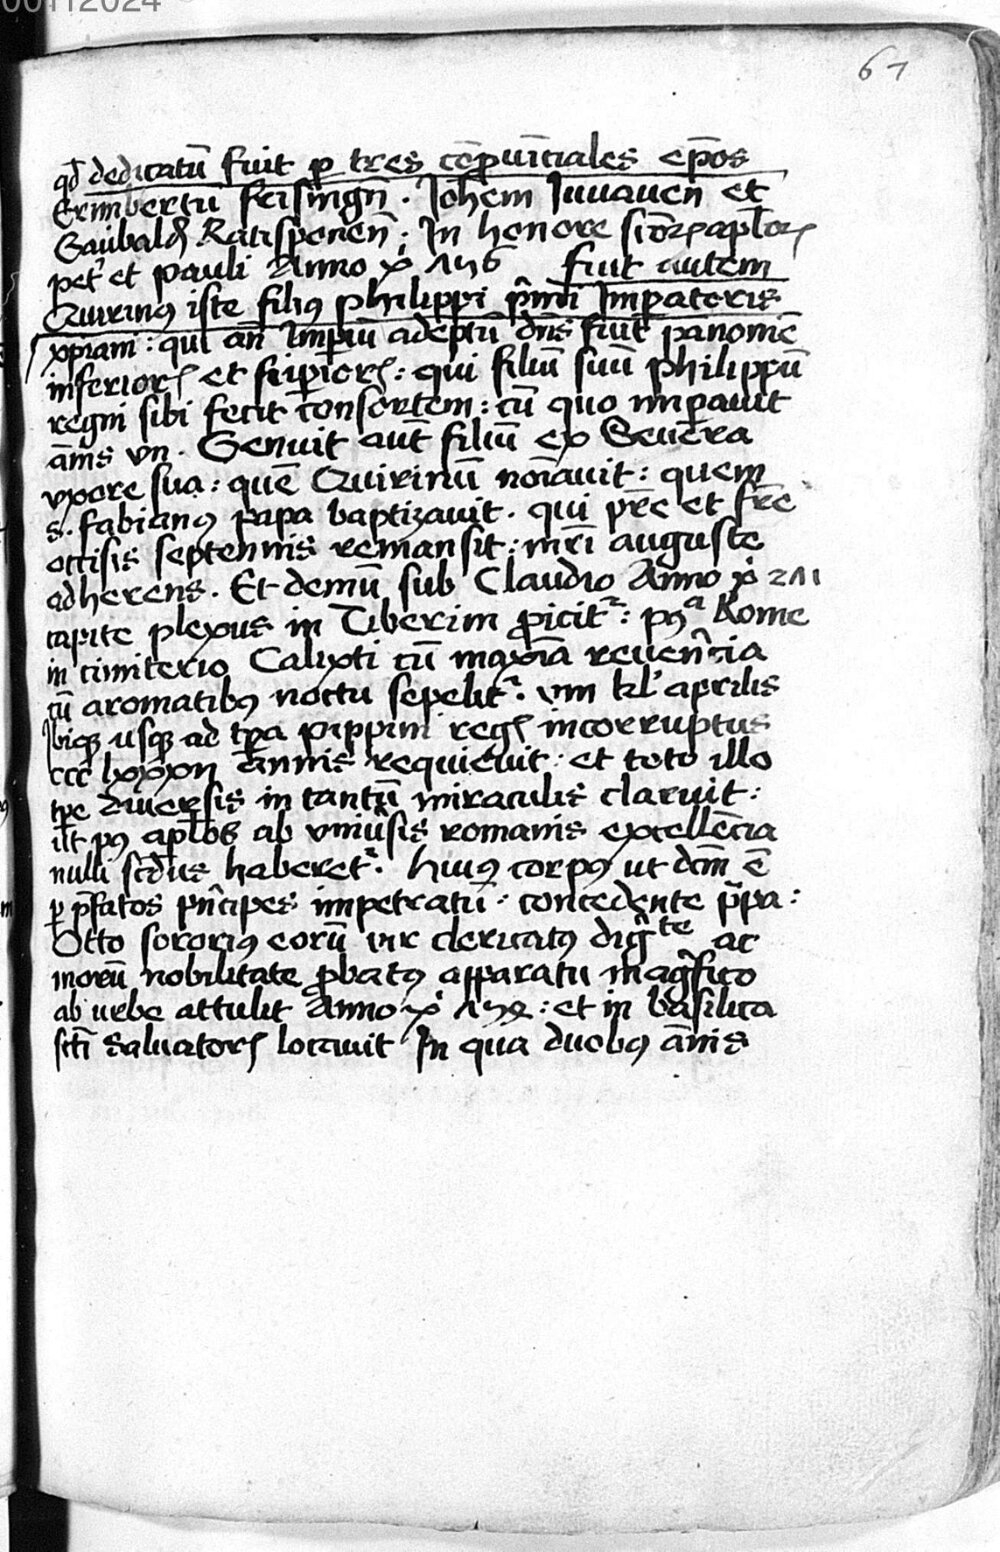 00112024
67
qd dedicatū fuit p tres cōpuīciales ep̄os
Erimbertū frisingn̄ . Joh̄em Juuauen̄ et
Gaubaldū Ratisponen̄ : In honore sctōrꝫ apl̄orꝫ
petri et pauli Anno xi 756 fuit autem
Quirinꝰ iste filiꝰ philippi p̄mi Imperatoris
xp̄iani : qui an̄ Imperiū adeptū dn̄s fuit panonīe
inferiorꝭ et supiorꝭ : qui filiū suū philippū
regni sibi fecit consortem : cū quo impauit
ānis vii . Genuit aut̄ filiū ex Seuera
vxore sua : quē Quirinū noīauit : quem
s. fabianꝰ papa baptizauit . qui pr̄e et fr̄e
occisis septennis remansit : mr̄i auguste
adherens . Et demū sub Claudio Anno xi 271
capite plexus in Tiberim ꝓicitr : pꝰa Rome
in cimiterio Calixti cū maxīa reuern̄cia
cū aromatibꝰ noctu sepelitr . viii kl' aprilis
Ibiqꝫ usqꝫ ad tp̄a pippini regꝭ incorruptus
cccc lxxxvii annis requieuit : et toto illo
tp̄e diuersis in tantū miraculis claruit :
ut pꝰ apl̄os ab vniūsis romanis excellēcia
nulli scd̄us haberetr . huiꝰ corpꝰ ut dc̄m ē
p p̄fatos pn̄cipes impetratū : concedente p̄pa :
Otto sororiꝰ eorū vir clericatꝰ dig̃te ac
morū nobilitate ꝓbatꝰ apparatu mag̃fico
ab urbe attulit Anno xi 758 : et in basilica
sct̄i Saluatorꝭ locauit In qua duobꝰ ānis